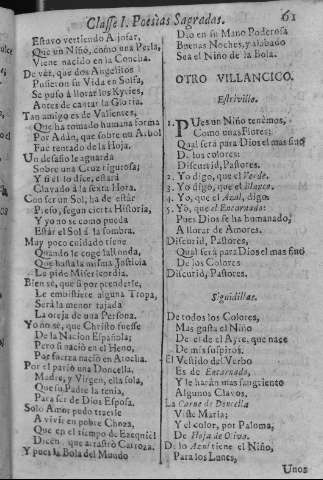 Classe I. Poesias Sagradas.
61
Estavo vertiendo Ajofar,
Que un Niño, como una Perla,
Viene nacido en la Concha.
De vèr, que dos Angelitos
Pusieron su Vida en Solfa,
Se puso à llorar los Kyries,
Antes de cantar la Gloria.
Tan amigo es de Valientes,
Que ha tomado humana forma
Por Adàn, que sobre un Arbol
Fue tentado de la Hoja.
Un desafio le aguarda
Sobre una Cruz rigurosa;
Y si èl lo dice, estarà
Clavado à la sexta Hora.
Con ser un Sol, ha de estàr
Preso, segun cierta Historia,
Y yo no se como pueda
Estàr el Sol à la sombra.
Muy poco cuidado tiene
Quando le coge la Ronda,
Que hasta la misma Justicia
Le pide Misericordia.
Bien sè, que si por prenderle,
Le embistiere alguna Tropa,
Serà la menor tajada
La oreja de una Persona.
Yo no sè, que Christo fuesse
De la Nacion Española;
Pero si naciò en el Heno,
Por fuerza naciò en Atocha.
Por el pariò una Doncella,
Madre, y Virgen, ella sola,
Que su Padre la tenia,
Para ser de Dios Esposa.
Solo Amor pudo traerle
A vivir en pobre Choza,
Que en el tiempo de Ezequièl
Dicen que arrastrò Carroza.
Y pues la Bola del Mundo
Dio en su Mano Poderosa
Buenas Noches, y alabado
Sea el Niño de la Bola.
OTRO VILLANCICO.
Estrivillo.
1. PUes un Niño tenèmos,
Como unas Flores;
Qual serà para Dios el mas fino
De los colores:
Discurrid, Pastores.
2. Yo digo, que el Verde.
3. Yo digo, que el Blanco.
4. Yo, que el Azul, digo.
5. Yo, que el Encarnado:
Pues Dios se ha humanado,
A llorar de Amores.
Discurrid, Pastores,
Qual serà para Dios el mas fino
De los Colores
Discurrid, Pastores.
Siguidillas.
De todos los Colores,
Mas gusta el Niño
De el de el Ayre, que nace
De mis suspiros.
El Vestido del Verbo
Es de Encarnado,
Y le haràn mas sangriento
Algunos Clavos.
La Carne de Doncella
Viste Maria;
Y el color, por Paloma,
De Hoja de Oliva.
De lo Azul tiene el Niño,
Para los Lunes,
Unos